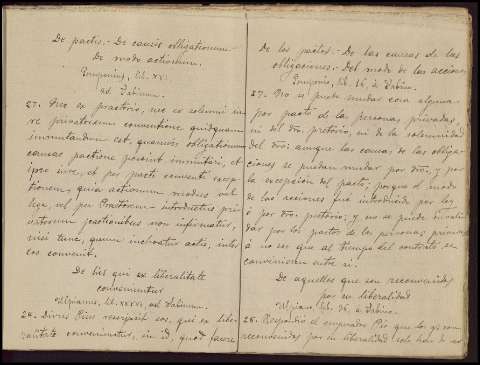 De pactis.- De causis obligationum.-
De modo actionum.
Pomponius, lib. XX.
ad Sabinum.
27. Neo ex praetorio, nec ex solemni iu-
re privatorum conventione quidquam
immutandum est, quamvis obligationum
causae, pactione possint immutari, et
ipso iure, et per pacti conventi excep-
tionem, quia actionum modus vel
lege, vel per Praetorem introductus pri-
vatorum pactionibus non infirmatur,
nisi tunc, quum inchoatur actio, inter
eos convenit.
De his qui ex liberalitate
conveniuntur
Ulpianus, lib. XXXVI, ad Sabinum.
28. Divus Pius rescripsit eos, qui ex liber-
alitate conveniuntur, in id, quod facere
De los pactos.- De las causas de las
obligaciones.- Del modo de las acciones
Pomponio, lib. 16, a Sabino.
27. No se puede mudar cosa alguna
por pacto de las personas privadas,
ni del dro. pretorio, ni de la solemnidad
del dro: aunque las causas de las obliga-
ciones se puedan mudar por dro: y por
la excepcion del pacto, porque el modo
de las acciones fué introducido por ley
ó por dro. pretorio; y no se puede invali-
dar por los pactos de las personas privadas
á no ser que al tiempo del contrato se
convinieren entre si.
De aquellos que son reconvenidos
por su liberalidad
Ulpiano lib. 36, a Sabino.
28. Respondió el emperador Pio que los q. son
reconvenidos por su liberalidad solo han de ser